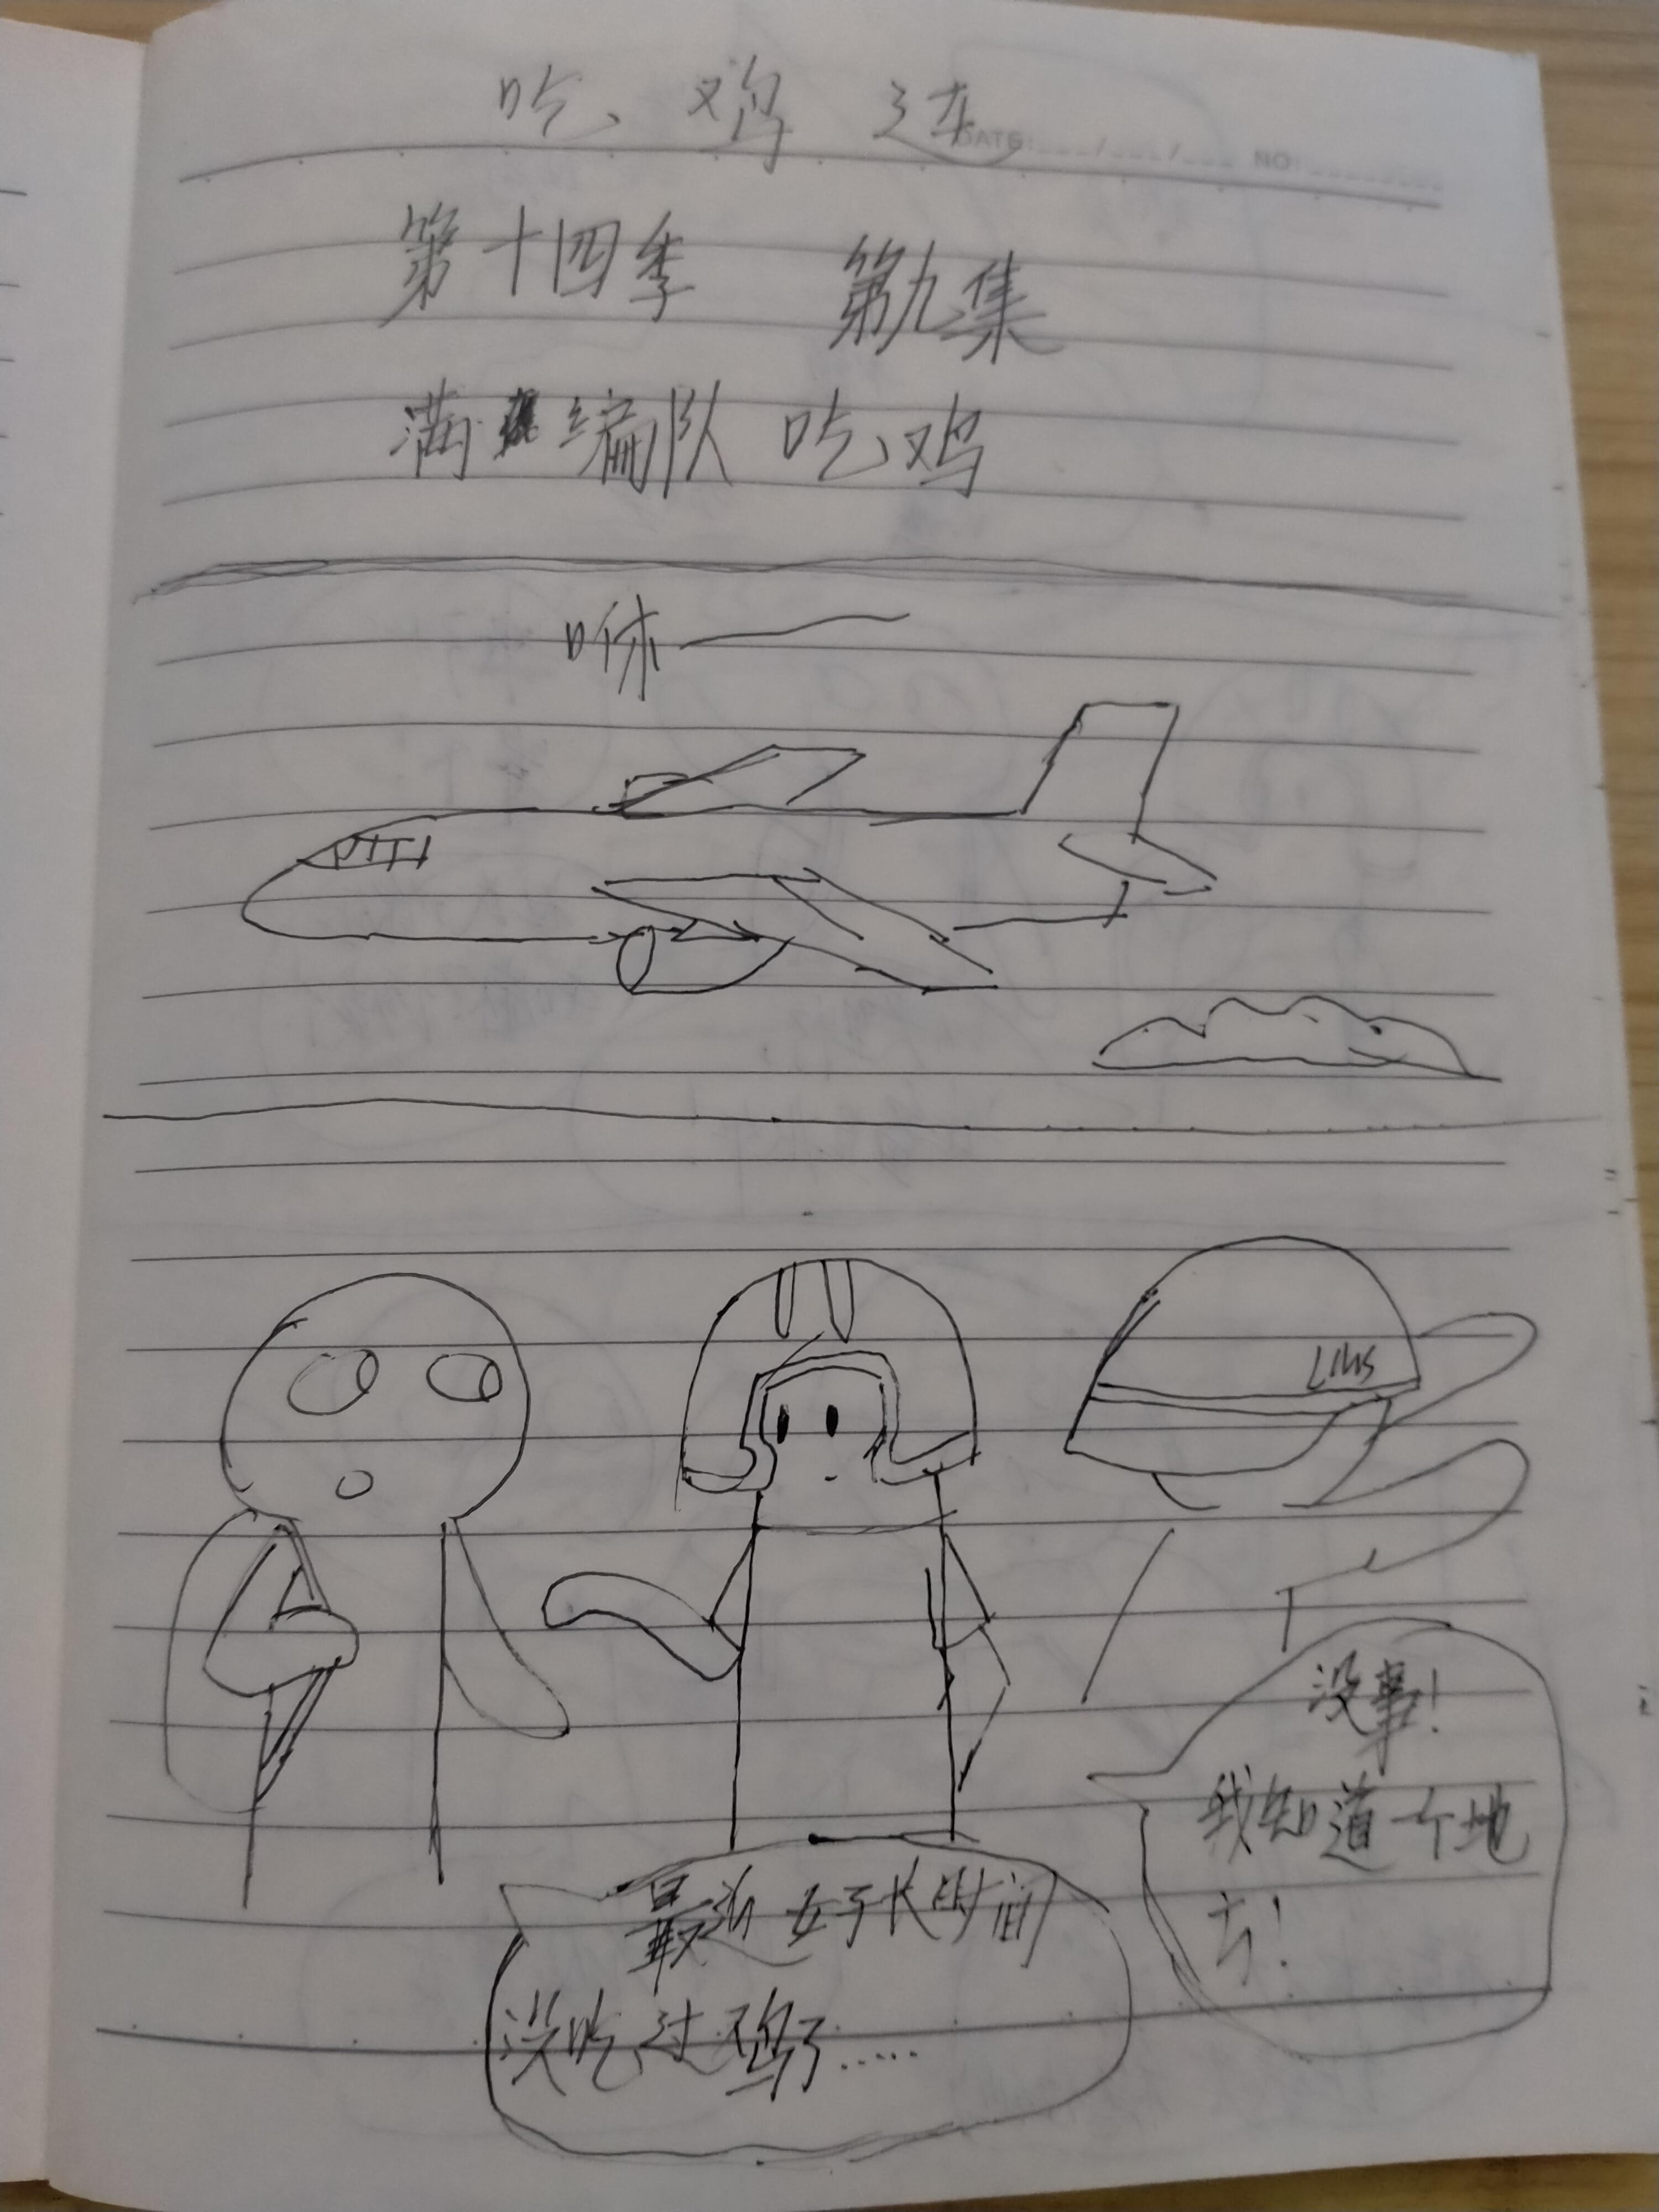 吃鸡连
DATE: / / NO:
第十四季 第九集
满编队吃鸡
咻——
没事!
我知道一个地
方!
最近好长时间
没吃过鸡了……